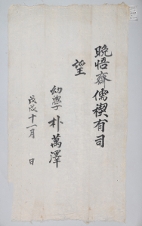 晩悟齋儒禊有司
望
幼學朴萬澤
戊戌十一月 日